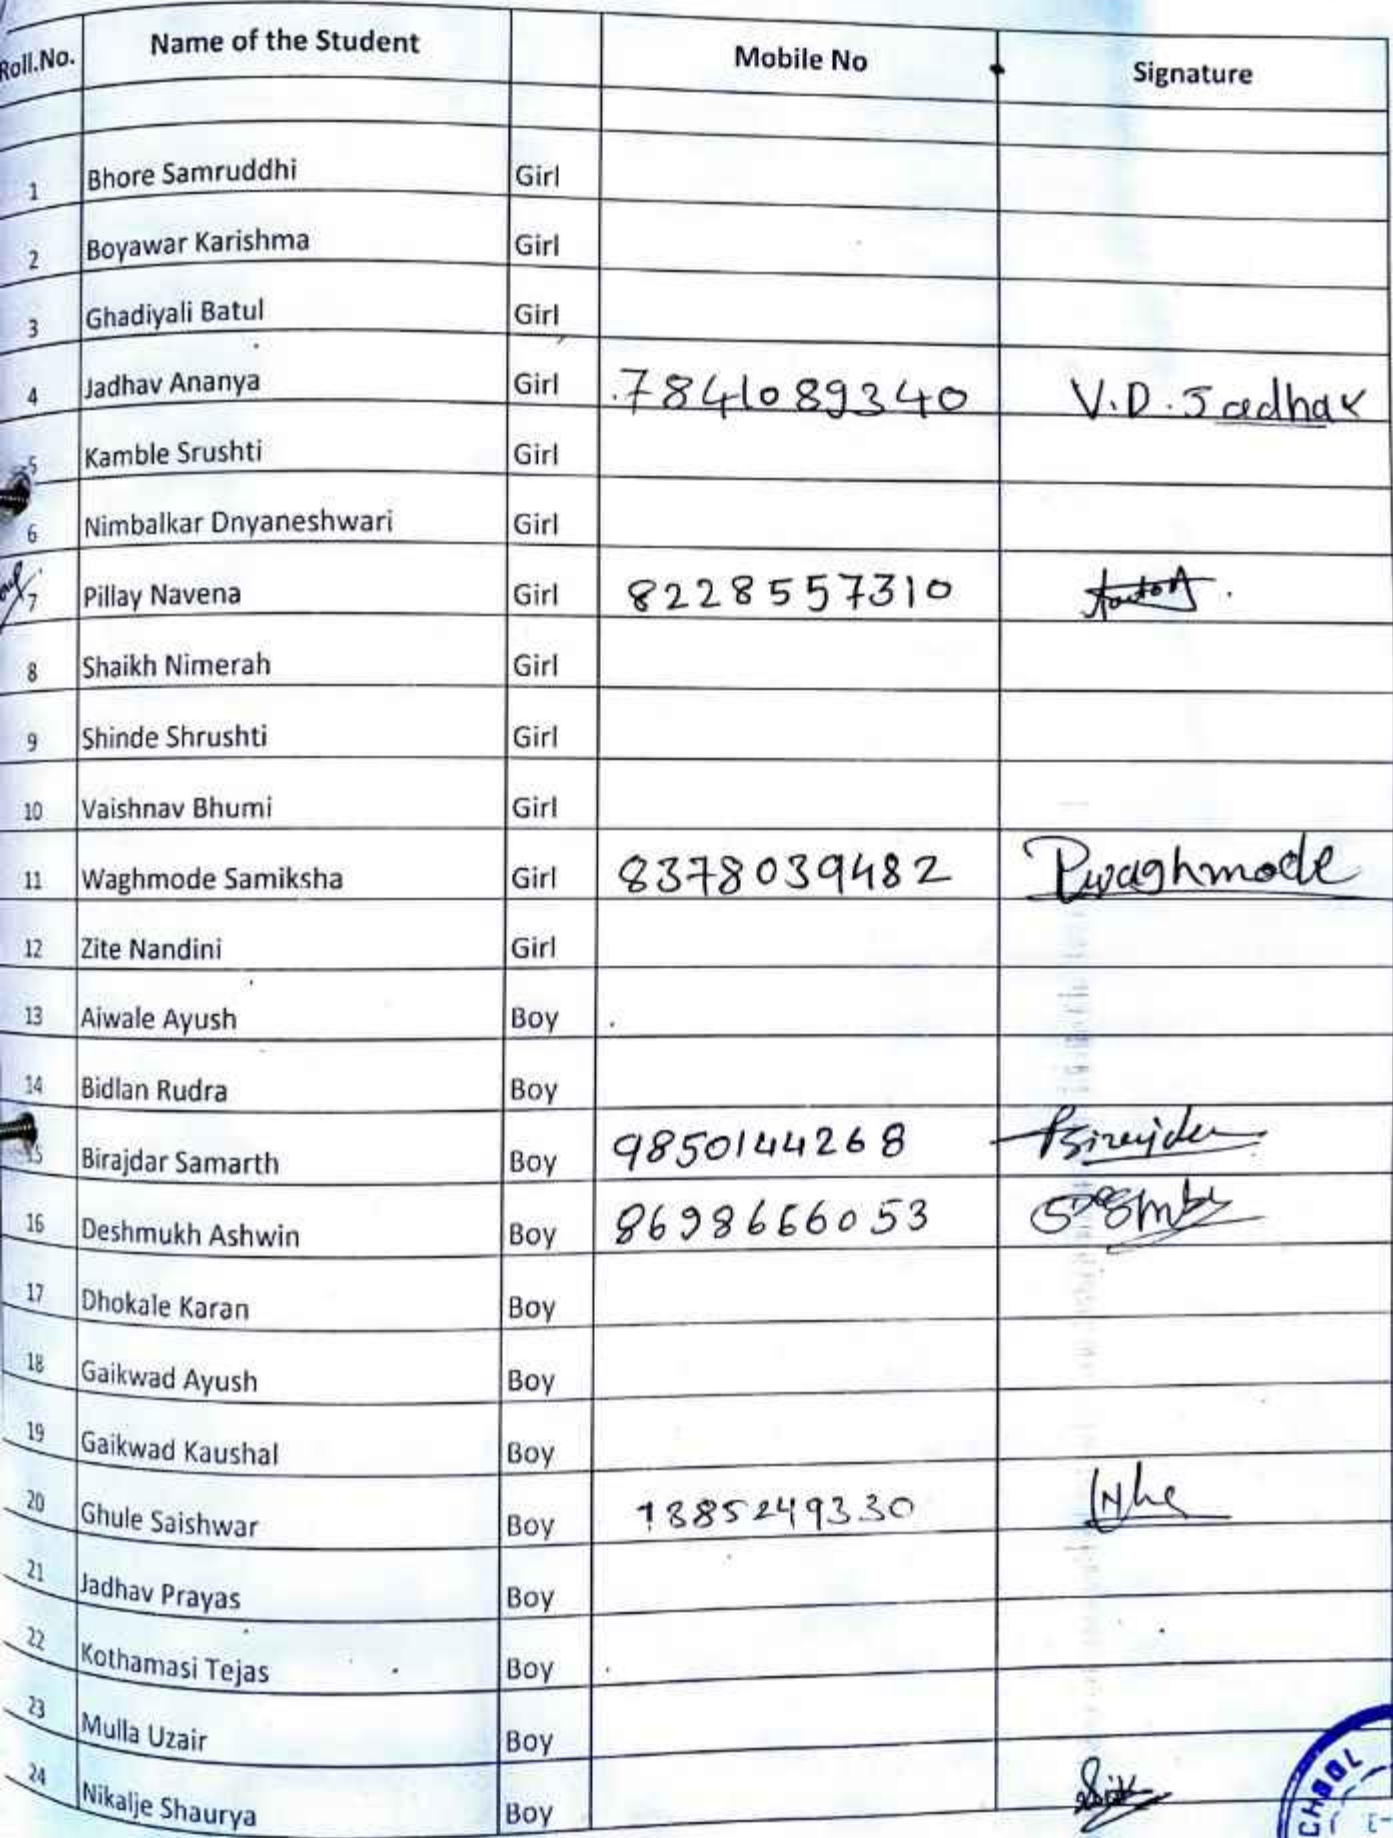 Roll.No. Name of the Student Mobile No Signature
1 Bhore Samruddhi Girl
2 Boyawar Karishma Girl
3 Ghadiyali Batul Girl
4 Jadhav Ananya Girl 7841089340 V.D. Jadhav
5 Kamble Srushti Girl
6 Nimbalkar Dnyaneshwari Girl
7 Pillay Navena Girl 8228557310
8 Shaikh Nimerah Girl
9 Shinde Shrushti Girl
10 Vaishnav Bhumi Girl
11 Waghmode Samiksha Girl 8378039482 Pwaghmode
12 Zite Nandini Girl
13 Aiwale Ayush Boy
14 Bidlan Rudra Boy
15 Birajdar Samarth Boy 9850144268
16 Deshmukh Ashwin Boy 8698666053
17 Dhokale Karan Boy
18 Gaikwad Ayush Boy
19 Gaikwad Kaushal Boy
20 Ghule Saishwar Boy
21 Jadhav Prayas Boy
22 Kothamasi Tejas Boy
23 Mulla Uzair Boy
24 Nikalje Shaurya Boy